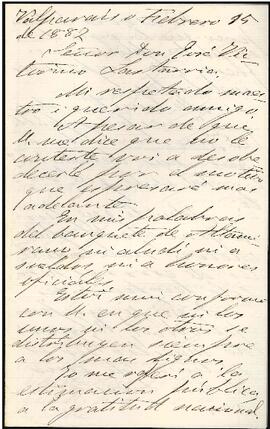 Valparaiso Febrero 15
de 1882
Señor Don José Vic
torino Lastarria.
Mi respetado maes
tro i querido amigo
A pesar de que
U. me dice que no le
conteste voi a desobe
decerle por el motivo
que espresaré mas
adelante.
En mis palabras
del banquete de Altami
rano ni aludí ni a
sueldos ni a honores
oficiales.
Estoi mui conforme
con U. en que ni los
unos ni los otros se
distribuyen siempre
a los mas dignos
Yo me referí a la
estimacion pública
a la gratitud nacional